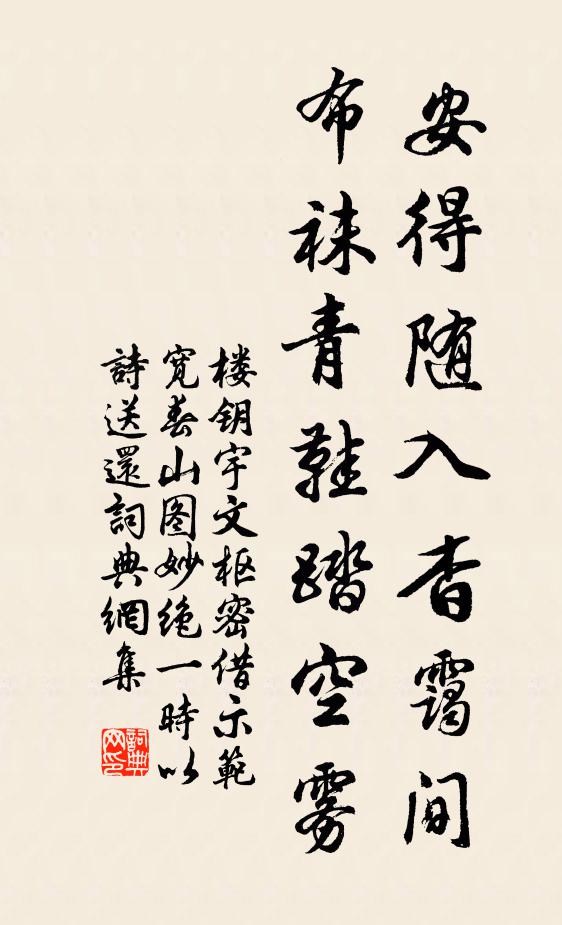 安得随入杳霭间
布袜青鞋踏空雾
楼钥宇文枢密借示範
宽春山图妙绝一時以
詩送還詞典網集
詞典
网印